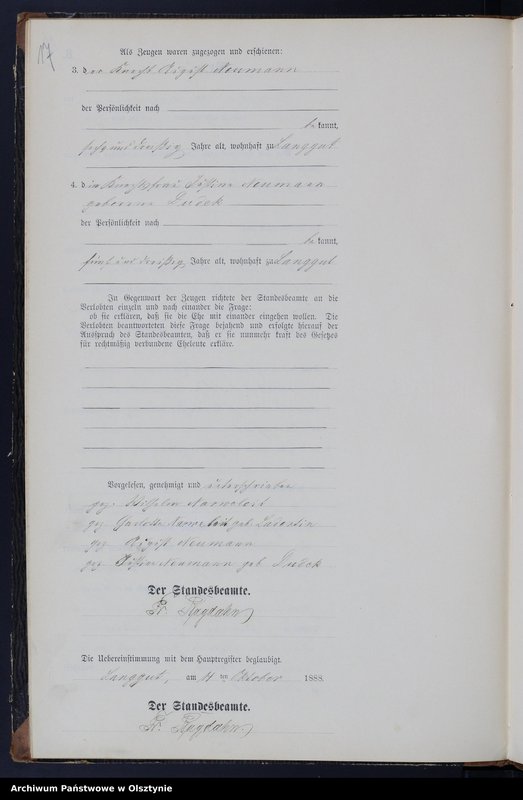 17
Als Zeugen waren zugezogen und erschienen:
3. der Knecht August Neumann
der Persönlichkeit nach
bekannt,
sechs und dreißig Jahre alt, wohnhaft zu Langgut
4. die Knechtsfrau Justine Neumann
geborene Dudek
der Persönlichkeit nach
bekannt,
fünf und dreißig Jahre alt, wohnhaft zu Langgut
In Gegenwart der Zeugen richtete der Standesbeamte an die
Verlobten einzeln und nach einander die Frage:
ob sie erklären, daß sie die Ehe mit einander eingehen wollen. Die
Verlobten beantworteten diese Frage bejahend und erfolgte hierauf der
Ausspruch des Standesbeamten, daß er sie nunmehr kraft des Gesetzes
für rechtmäßig verbundene Eheleute erkläre.
Vorgelesen, genehmigt und unterschrieben
gez. Wilhelm
gez. Charlotte geb.
gez. August Neumann
gez. Justine Neumann geb. Dudek
Der Standesbeamte.
Fr.
Die Uebereinstimmung mit dem Hauptregister beglaubigt.
Langgut, am 11 ten Oktober 1888.
Der Standesbeamte.
Fr.
Archiwum Państwowe w Olsztynie